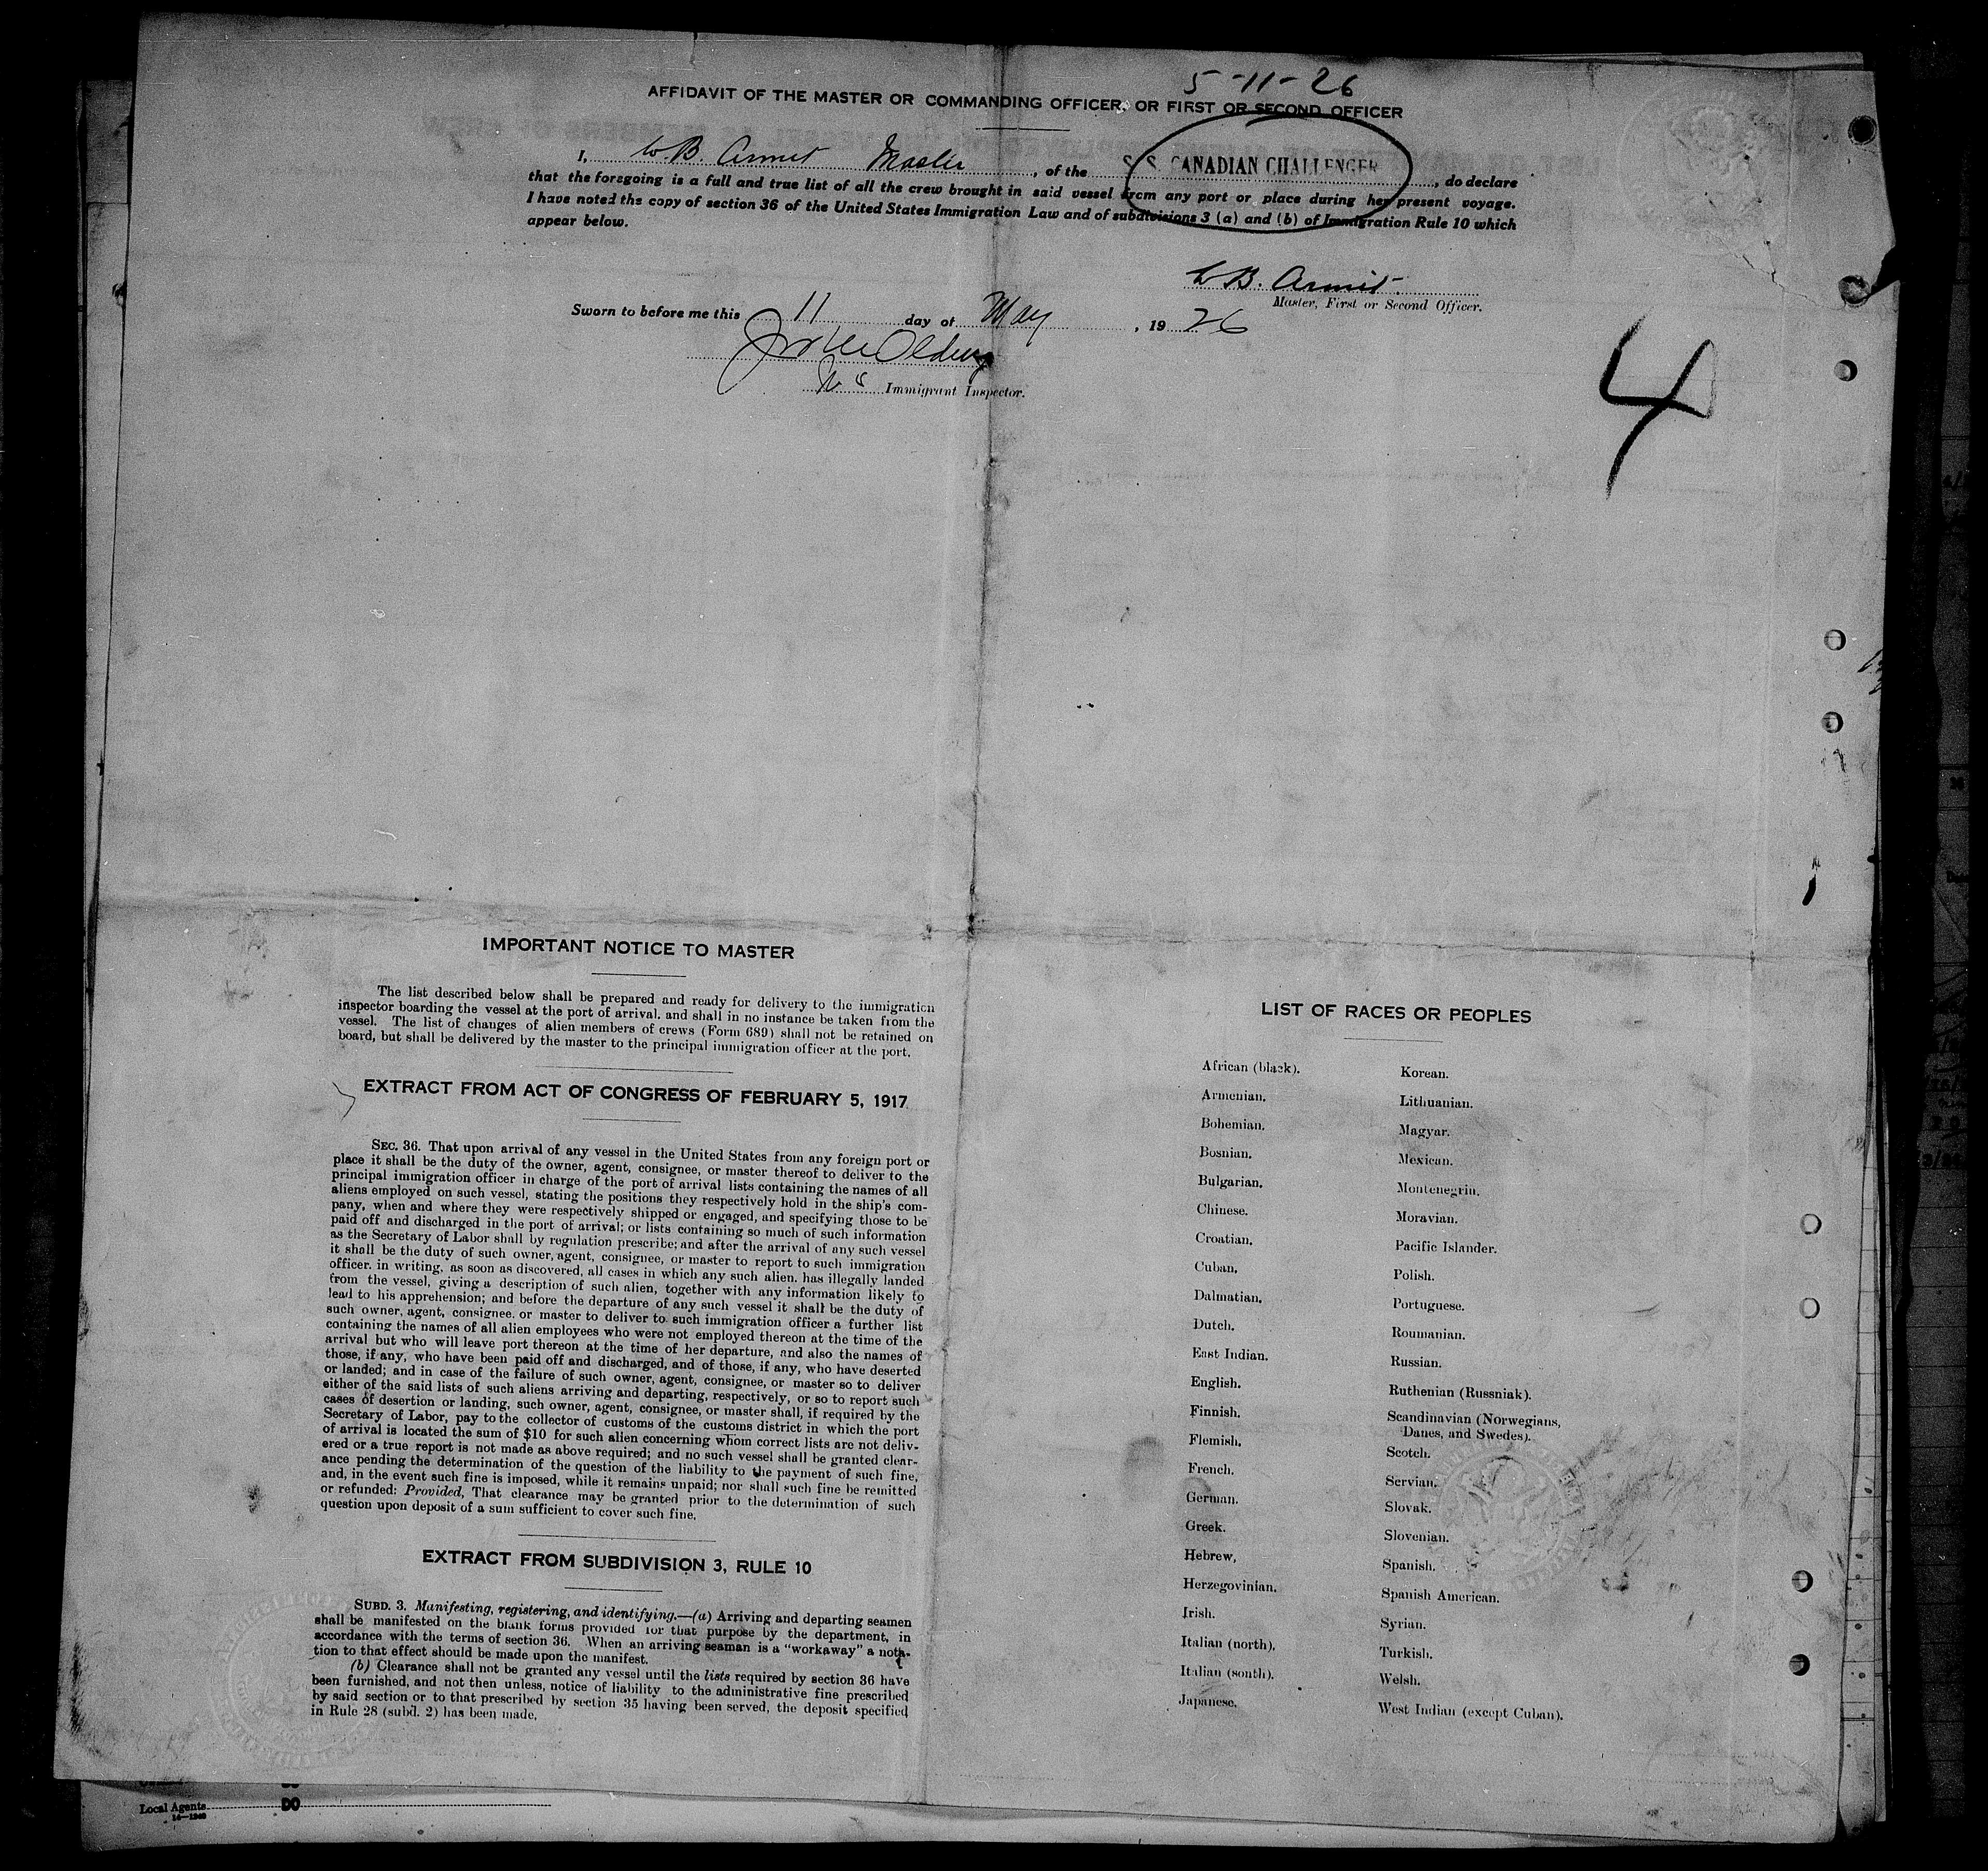 5-11-26
AFFIDAVIT OF THE MASTER OR COMMANDING OFFICER, OR FIRST OR SECOND OFFICER
I, W.B. Armit Master, of the S. S. CANADIAN CHALLENGER, do declare
that the foregoing is a full and true list of all the crew brought in said vessel from any port or place during her present voyage.
I have noted the copy of section 36 of the United States Immigration Law and of subdivisions 3 (a) and (b) of Immigration Rule 10 which
appear below.
W B. Armit
Master, First or Second Officer.
Sworn to before me this 11 day of May, 1926
Immigrant Inspector.
4
IMPORTANT NOTICE TO MASTER
The list described below shall be prepared and ready for delivery to the immigration
inspector boarding the vessel at the port of arrival, and shall in no instance be taken from the
vessel. The list of changes of alien members of crews (Form 689) shall not be retained on
board, but shall be delivered by the master to the principal immigration officer at the port.
EXTRACT FROM ACT OF CONGRESS OF FEBRUARY 5, 1917
SEC. 36. That upon arrival of any vessel in the United States from any foreign port or
place it shall be the duty of the owner, agent, consignee, or master thereof to deliver to the
principal immigration officer in charge of the port of arrival lists containing the names of all
aliens employed on such vessel, stating the positions they respectively hold in the ship's com-
pany, when and where they were respectively shipped or engaged, and specifying those to be
paid off and discharged in the port of arrival; or lists containing so much of such information
as the Secretary of Labor shall by regulation prescribe; and after the arrival of any such vessel
it shall be the duty of such owner, agent, consignee, or master to report to such immigration
officer, in writing, as soon as discovered, all cases in which any such alien, has illegally landed
from the vessel, giving a description of such alien, together with any information likely to
lead to his apprehension; and before the departure of any such vessel it shall be the duty of
such owner, agent, consignee, or master to deliver to such immigration officer a further list
containing the names of all alien employees who were not employed thereon at the time of the
arrival but who will leave port thereon at the time of her departure, and also the names of
those, if any, who have been paid off and discharged, and of those, if any, who have deserted
or landed; and in case of the failure of such owner, agent, consignee, or master so to deliver
either of the said lists of such aliens arriving and departing, respectively, or so to report such
cases of desertion or landing, such owner, agent, consignee, or master shall, if required by the
Secretary of Labor, pay to the collector of customs of the customs district in which the port
of arrival is located the sum of $10 for such alien concerning whom correct lists are not deliv-
ered or a true report is not made as above required; and no such vessel shall be granted clear-
ance pending the determination of the question of the liability to the payment of such fine,
and, in the event such fine is imposed, while it remains unpaid; nor shall such fine be remitted
or refunded: Provided, That clearance may be granted prior to the determination of such
question upon deposit of a sum sufficient to cover such fine.
EXTRACT FROM SUBDIVISION 3, RULE 10
SUBD. 3. Manifesting, registering, and identifying.—(a) Arriving and departing seamen
shall be manifested on the blank forms provided for that purpose by the department, in
accordance with the terms of section 36. When an arriving seaman is a "workaway" a nota-
tion to that effect should be made upon the manifest.
(b) Clearance shall not be granted any vessel until the lists required by section 36 have
been furnished, and not then unless, notice of liability to the administrative fine prescribed
by said section or to that prescribed by section 35 having been served, the deposit specified
in Rule 28 (subd. 2) has been made.
LIST OF RACES OR PEOPLES
African (black).
Armenian.
Bohemian.
Bosnian.
Bulgarian.
Chinese.
Croatian.
Cuban.
Dalmatian.
Dutch.
East Indian.
English.
Finnish.
Flemish.
French.
German.
Greek.
Hebrew.
Herzegovinian.
Irish.
Italian (north).
Italian (south).
Japanese.
Korean.
Lithuanian.
Magyar.
Mexican.
Montenegrin.
Moravian.
Pacific Islander.
Polish.
Portuguese.
Roumanian.
Russian.
Ruthenian (Russniak).
Scandinavian (Norwegians,
Danes, and Swedes).
Scotch.
Servian.
Slovak.
Slovenian.
Spanish.
Spanish American.
Syrian.
Turkish.
Welsh.
West Indian (except Cuban).
Local Agents